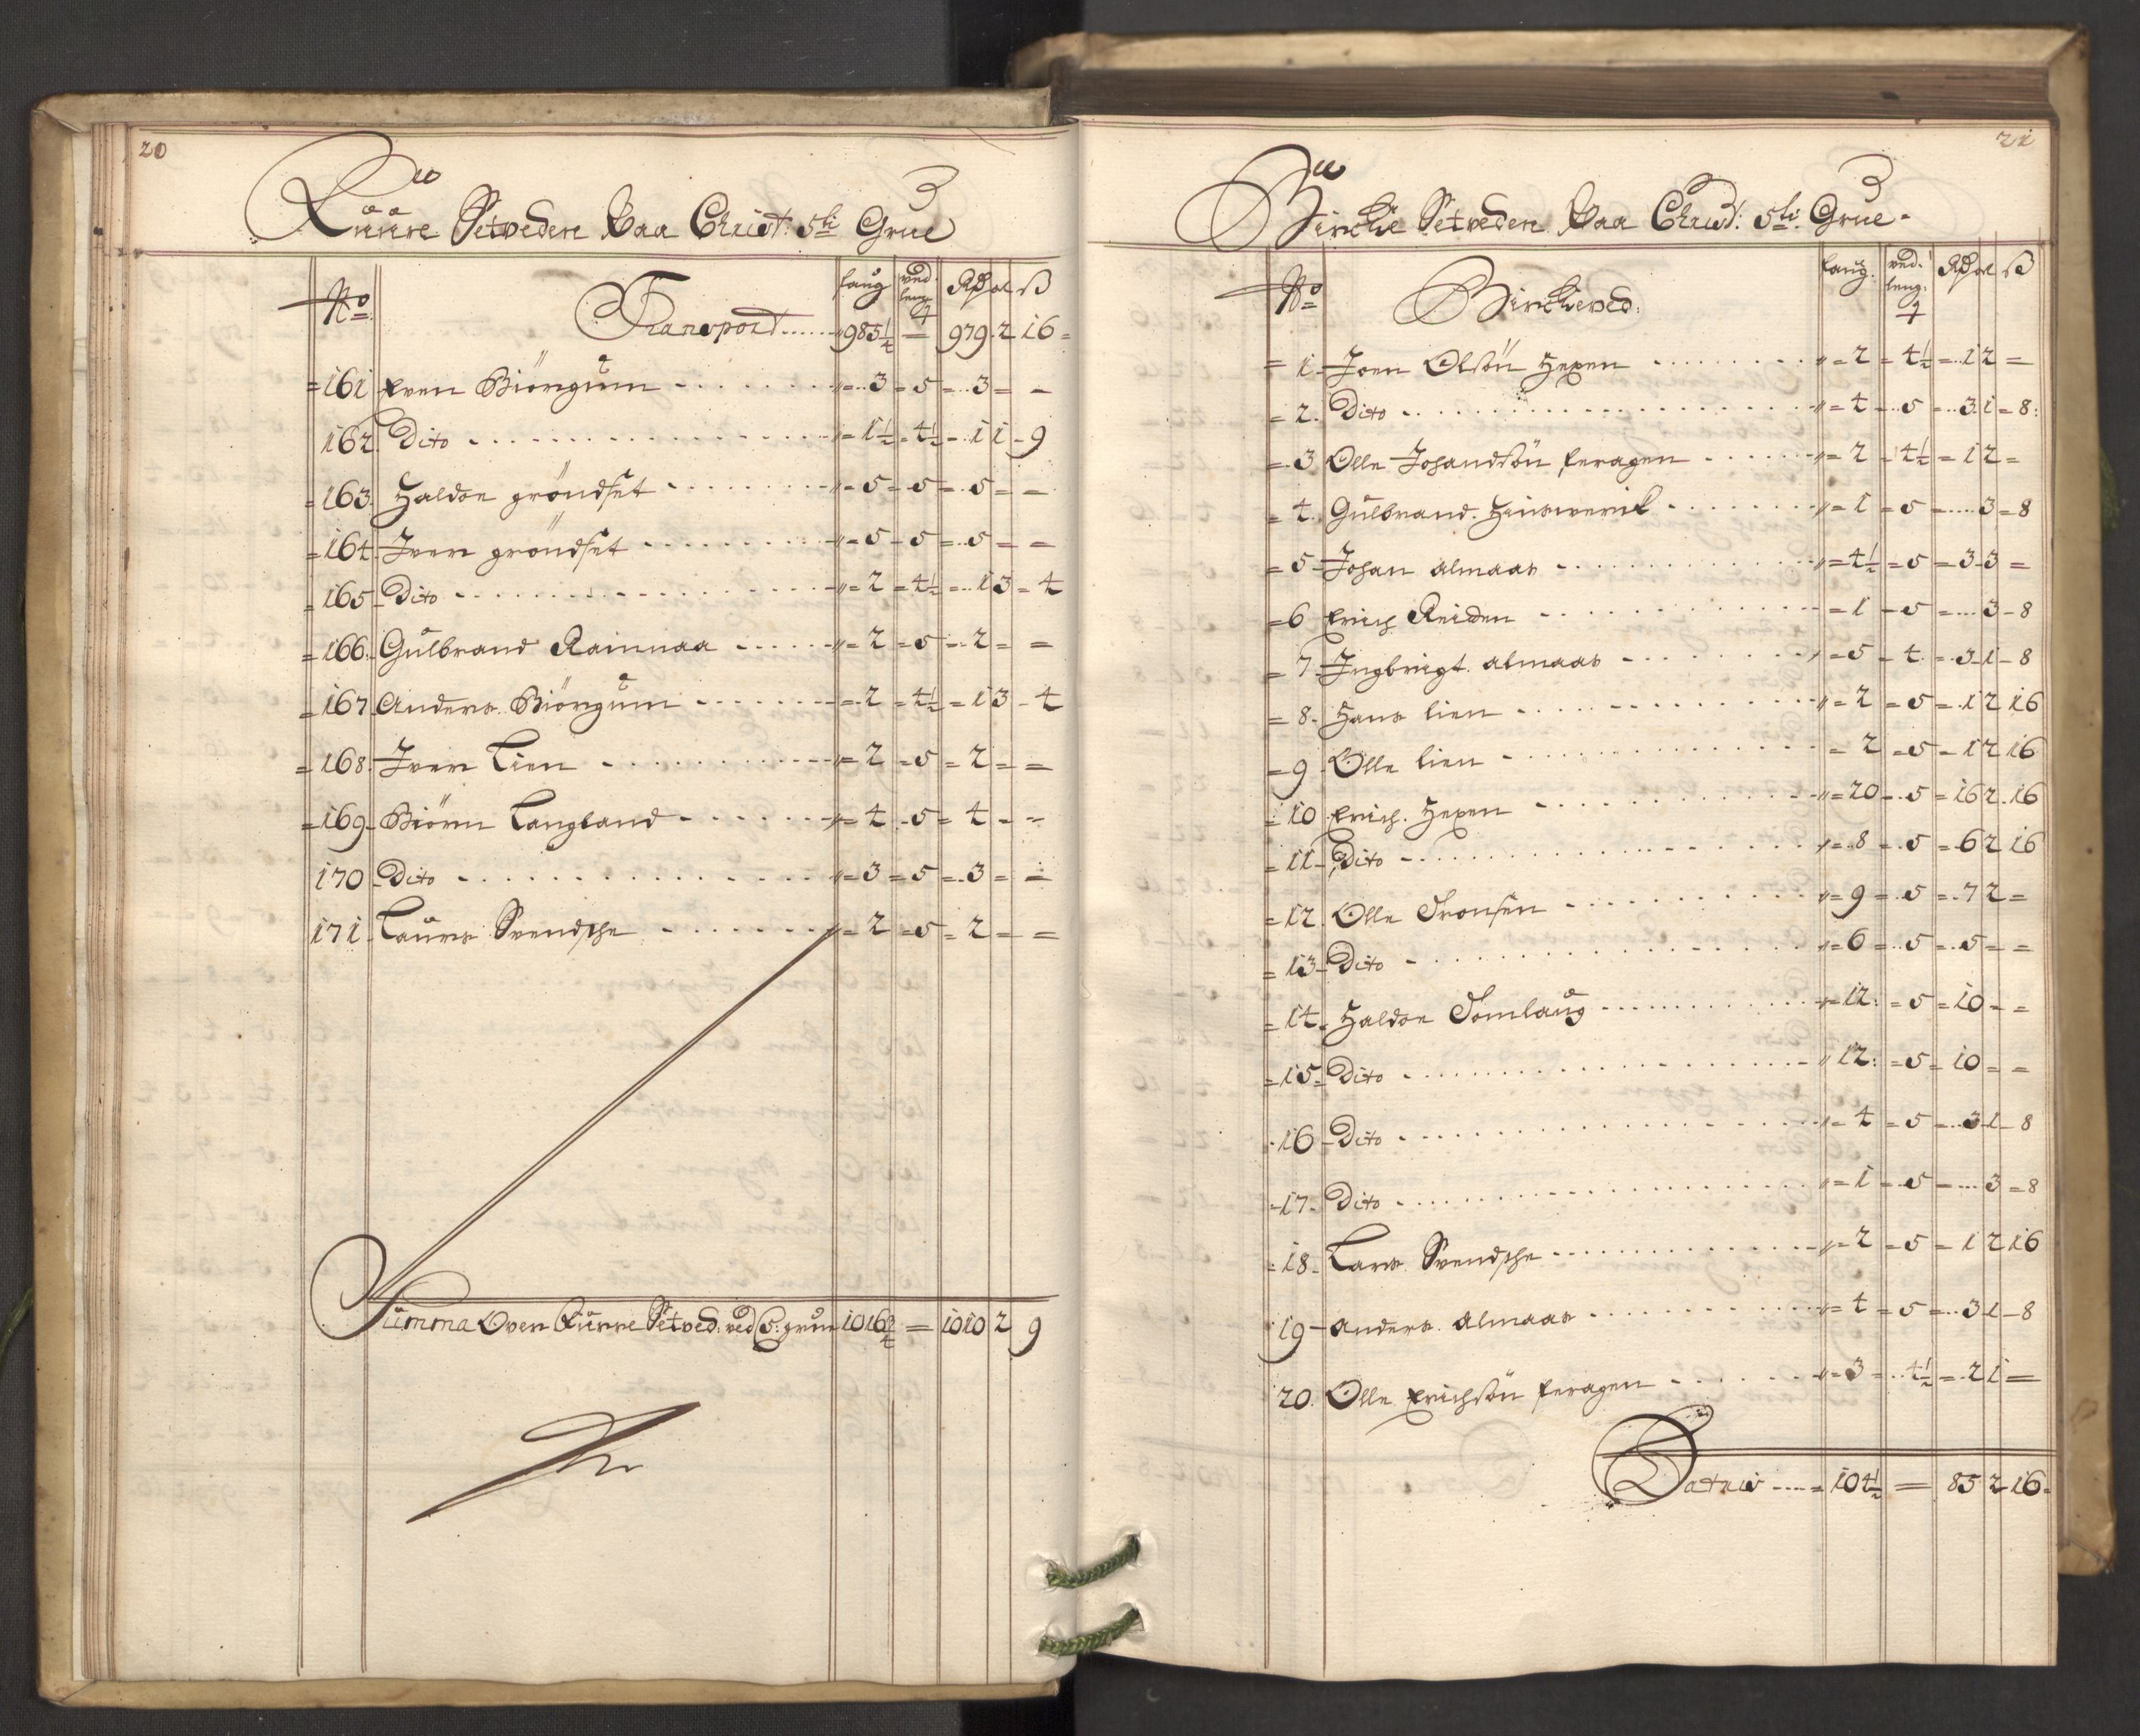 20
Fuurre Setveden Paa Christ: 5ti Grue
No favg ved leng: 4 Rdr ort ß
Transport ...... 985 1/4 = 979. 2 16 =
161 Even Biörgum - 3 = 5 = 3 = -
162. Dito - 1 1/2 = 4 1/2 = 1 1 - 9
163. Haldor gröndset - 5 = 5 = 5 = -
164 Iver gröndset - 5 - 5 = 5 = =
165 Dito - 2 = 4 1/2 = 1 3 = 4
166. Gulbrand Ramnaa - 2 = 5 = 2 = =
167 Anders Biörgum - 2 = 4 1/2 = 1 3 - 4
168. Iver Lien - 2 = 5 = 2 = =
169 Biörn Langland - 4 - 5 = 4 - -
170 Dito - 3 = 5 = 3 = =
171. Laurs Svendsche - 2 = 5 = 2 = =
Summa Over Furre Setved: ved C: 5: grue 1016 3/4 = 1010 2 9
21
Bircke Setveden Paa Christ: 5ti: Grue
No Birckeved: favg. ved: leng: 4 Rdr ort ß
1. Joen Olsön Hexen - 2 = 4 1/2 = 1 2 =
2. Dito - 4 = 5 = 3. 1 = 8:
3 Olle Johandsön feragen - 2 - 4 1/2 = 1 2 =
4. Gulbrand. - 1 = 5 = 3 = 8
5 Johan Almaas - 4 1/2 = 5 = 3 - 3 =
6 Erich Reiden - 1 = 5 = 3 - 8
7 Ingbrigt. almaas - 5 - 4. = 3 - 1 - 8
8. Hans lien - 2 = 5 = 1 2 16
9 Olle lien - 2 = 5 = 1 2 16
10 Erich. Hexen - 20 = 5 = 16 2. 16
11 Dito - 8 = 5 = 6 2 16
12. Olle Tronsen - 9 = 5 = 7 2 =
13 Dito - 6 = 5 = 5 = =
14. Haldor Tomlaug - 12: = 5 = 10 - -
15 Dito - 12: = 5 = 10 = -
16 Dito - 4 = 5 = 3 1 - 8
17. Dito - 1 = 5 = 3 = 8
18. Lars Svendsche - 2 = 5 = 1 2 16
19 Anders. Almaas - 4 = 5 = 3 1 - 8
20. Olle Erichsön feragen - 3 = 4 1/2 = 2 1 =
Latris ---- = 104 1/2 = 85 2 16 -